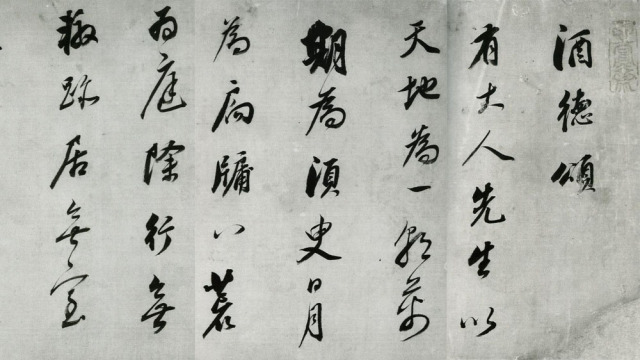 酒德頌
有大人先生以
天地為一朝萬
期為須臾日月
為扃牖八荒
為庭除行無
轍跡居無室